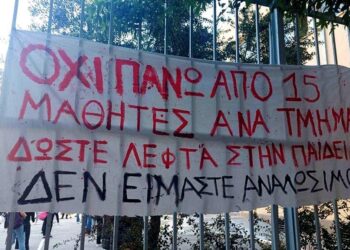 ΟΧΙ ΠΑΝΩ ΑΠΟ 15
ΜΑΘΗΤΕΣ ΑΝΑ ΤΜΗΜΑ
ΔΩΣΤΕ ΛΕΦΤΑ ΣΤΗΝ ΠΑΙΔΕΙ
ΔΕΝ ΕΙΜΑΣΤΕ ΑΝΑΛΩΣΙΜΟ